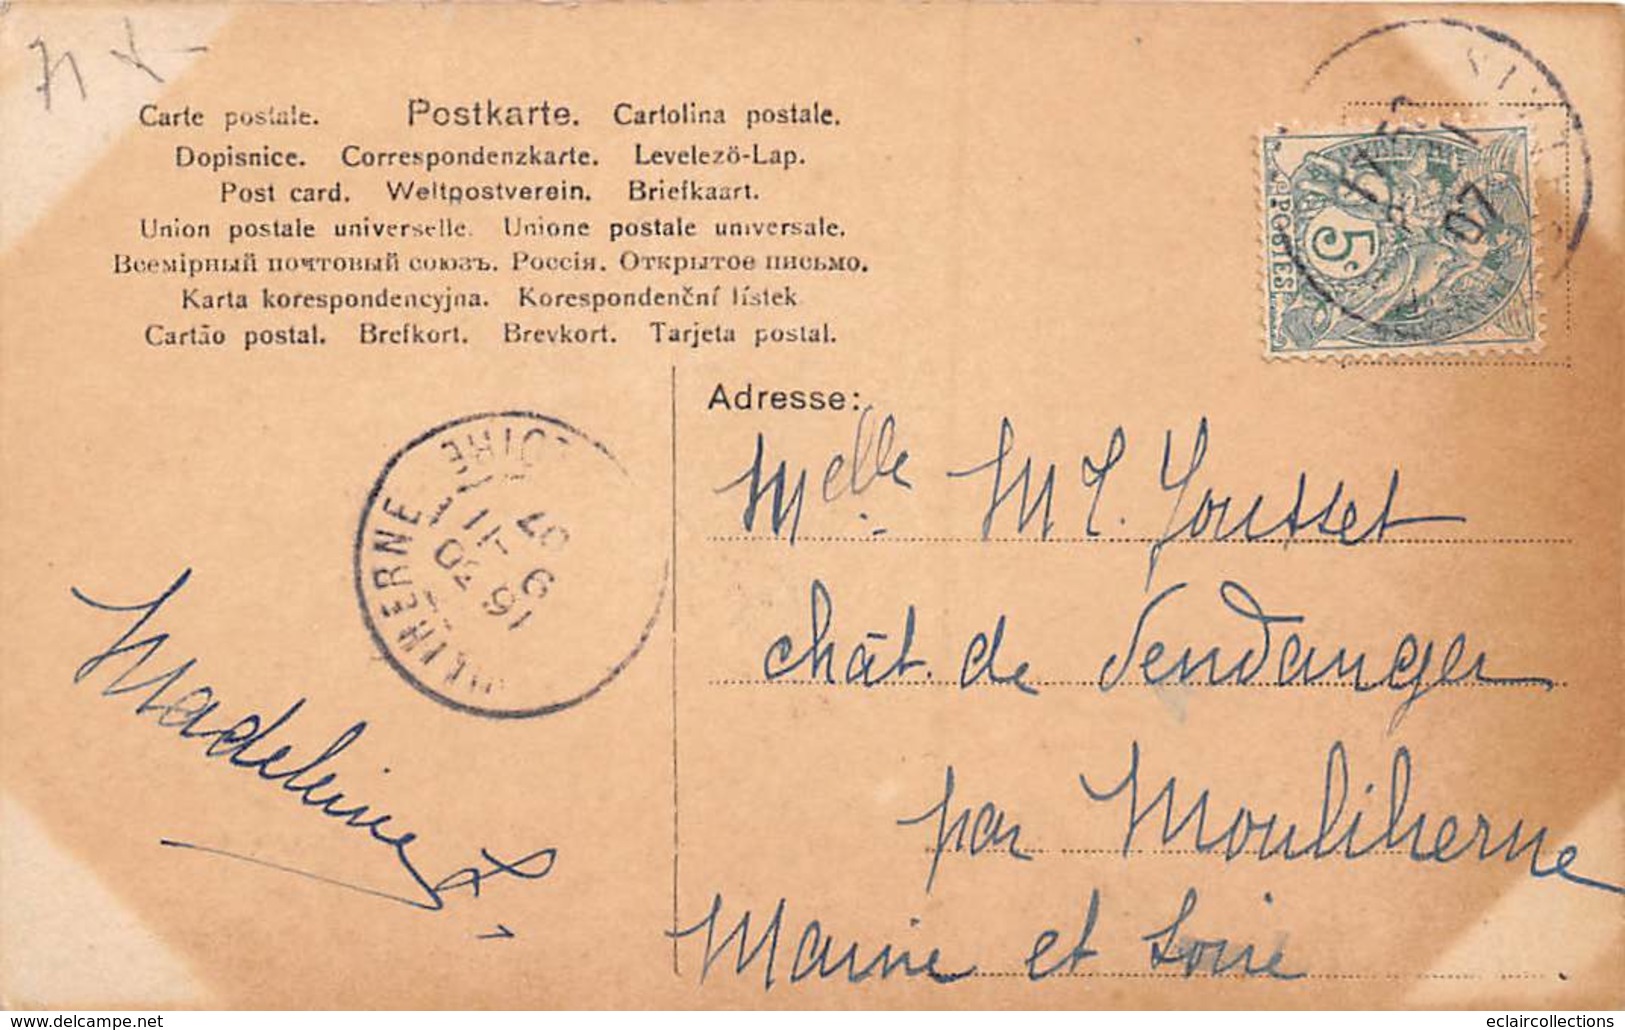 Carte postale. Postkarte. Cartolina postale.
Dopisnice. Correspondenzkarte. Levelező-Lap.
Post card. Weltpostverein. Briefkaart.
Union postale universelle. Unione postale universale.
Всемірный почтовый союзъ. Россія. Открытое письмо.
Karta korespondencyjna. Korespondenční lístek
Cartão postal. Brefkort. Brevkort. Tarjeta postal.
POSTES
5c
07
Adresse:
Melle M L. Jousset
chât. de Vendanger
par Mouliherne
Maine et Loire
LOIRE
HERNE
Madeleine
www.delcampe.net
eclaircollections